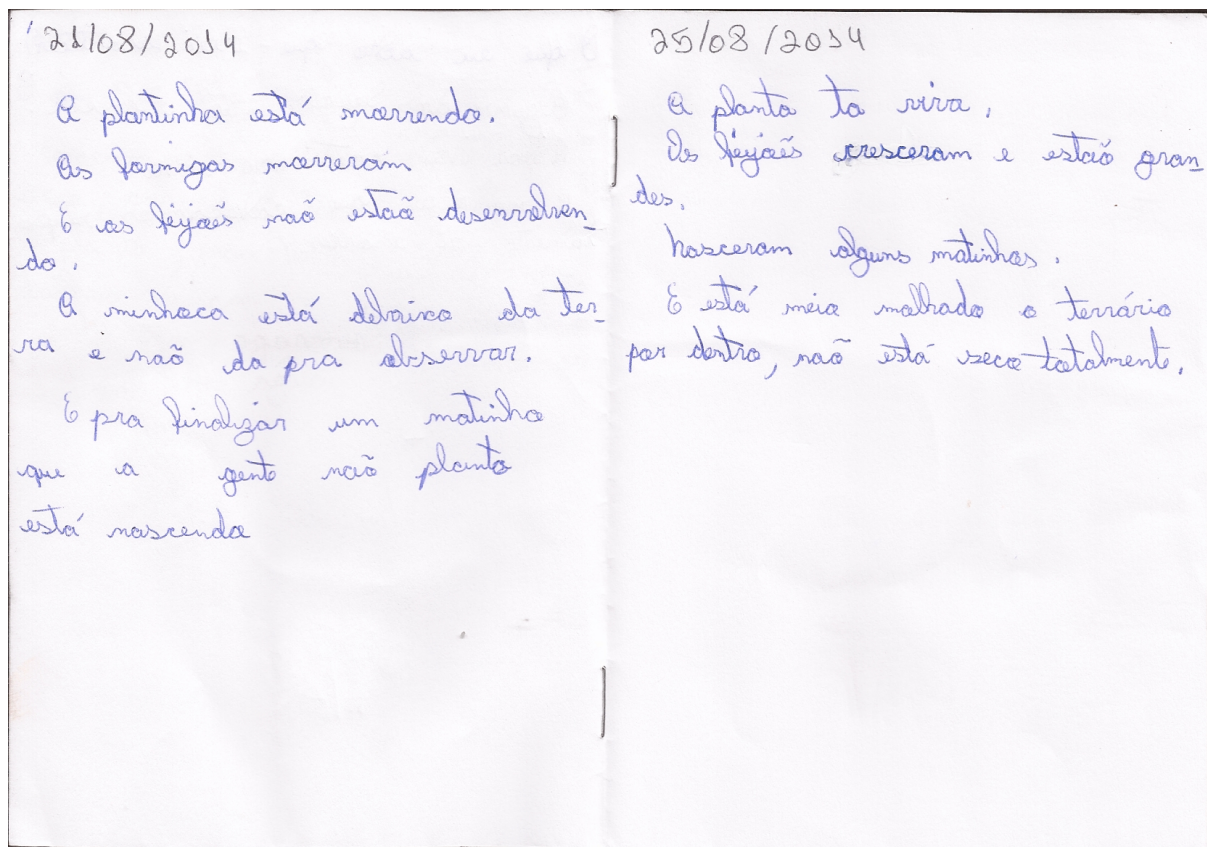 21/08/2014
A plantinha está morrendo.
As formigas morreram
E os feijoẽs naõ estaõ desenvolven-
do.
A minhoca está debaixo da ter-
ra e naõ da pra observar.
E pra finalizar um matinho
que a gente naõ planto
está nascendo
25/08/2014
A planta ta viva.
Os feijoẽs cresceram e estaõ gran-
des.
Nasceram alguns matinhos.
E está meio molhado o terrário
por dentro, naõ está seco totalmente.